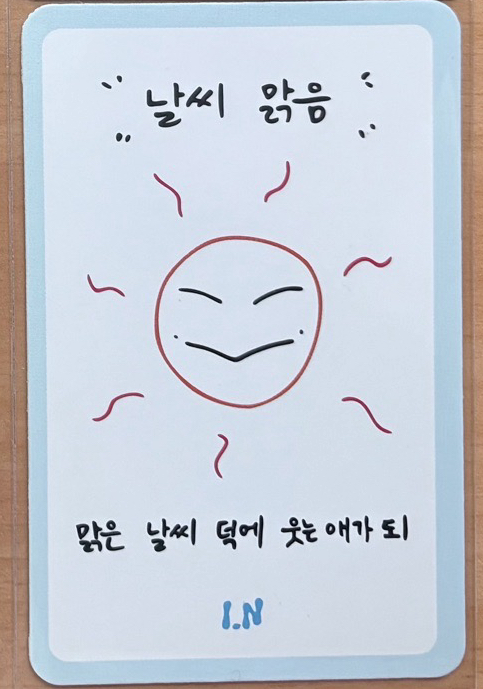 날씨 맑음
맑은 날씨 덕에 웃는 애가 되
I.N